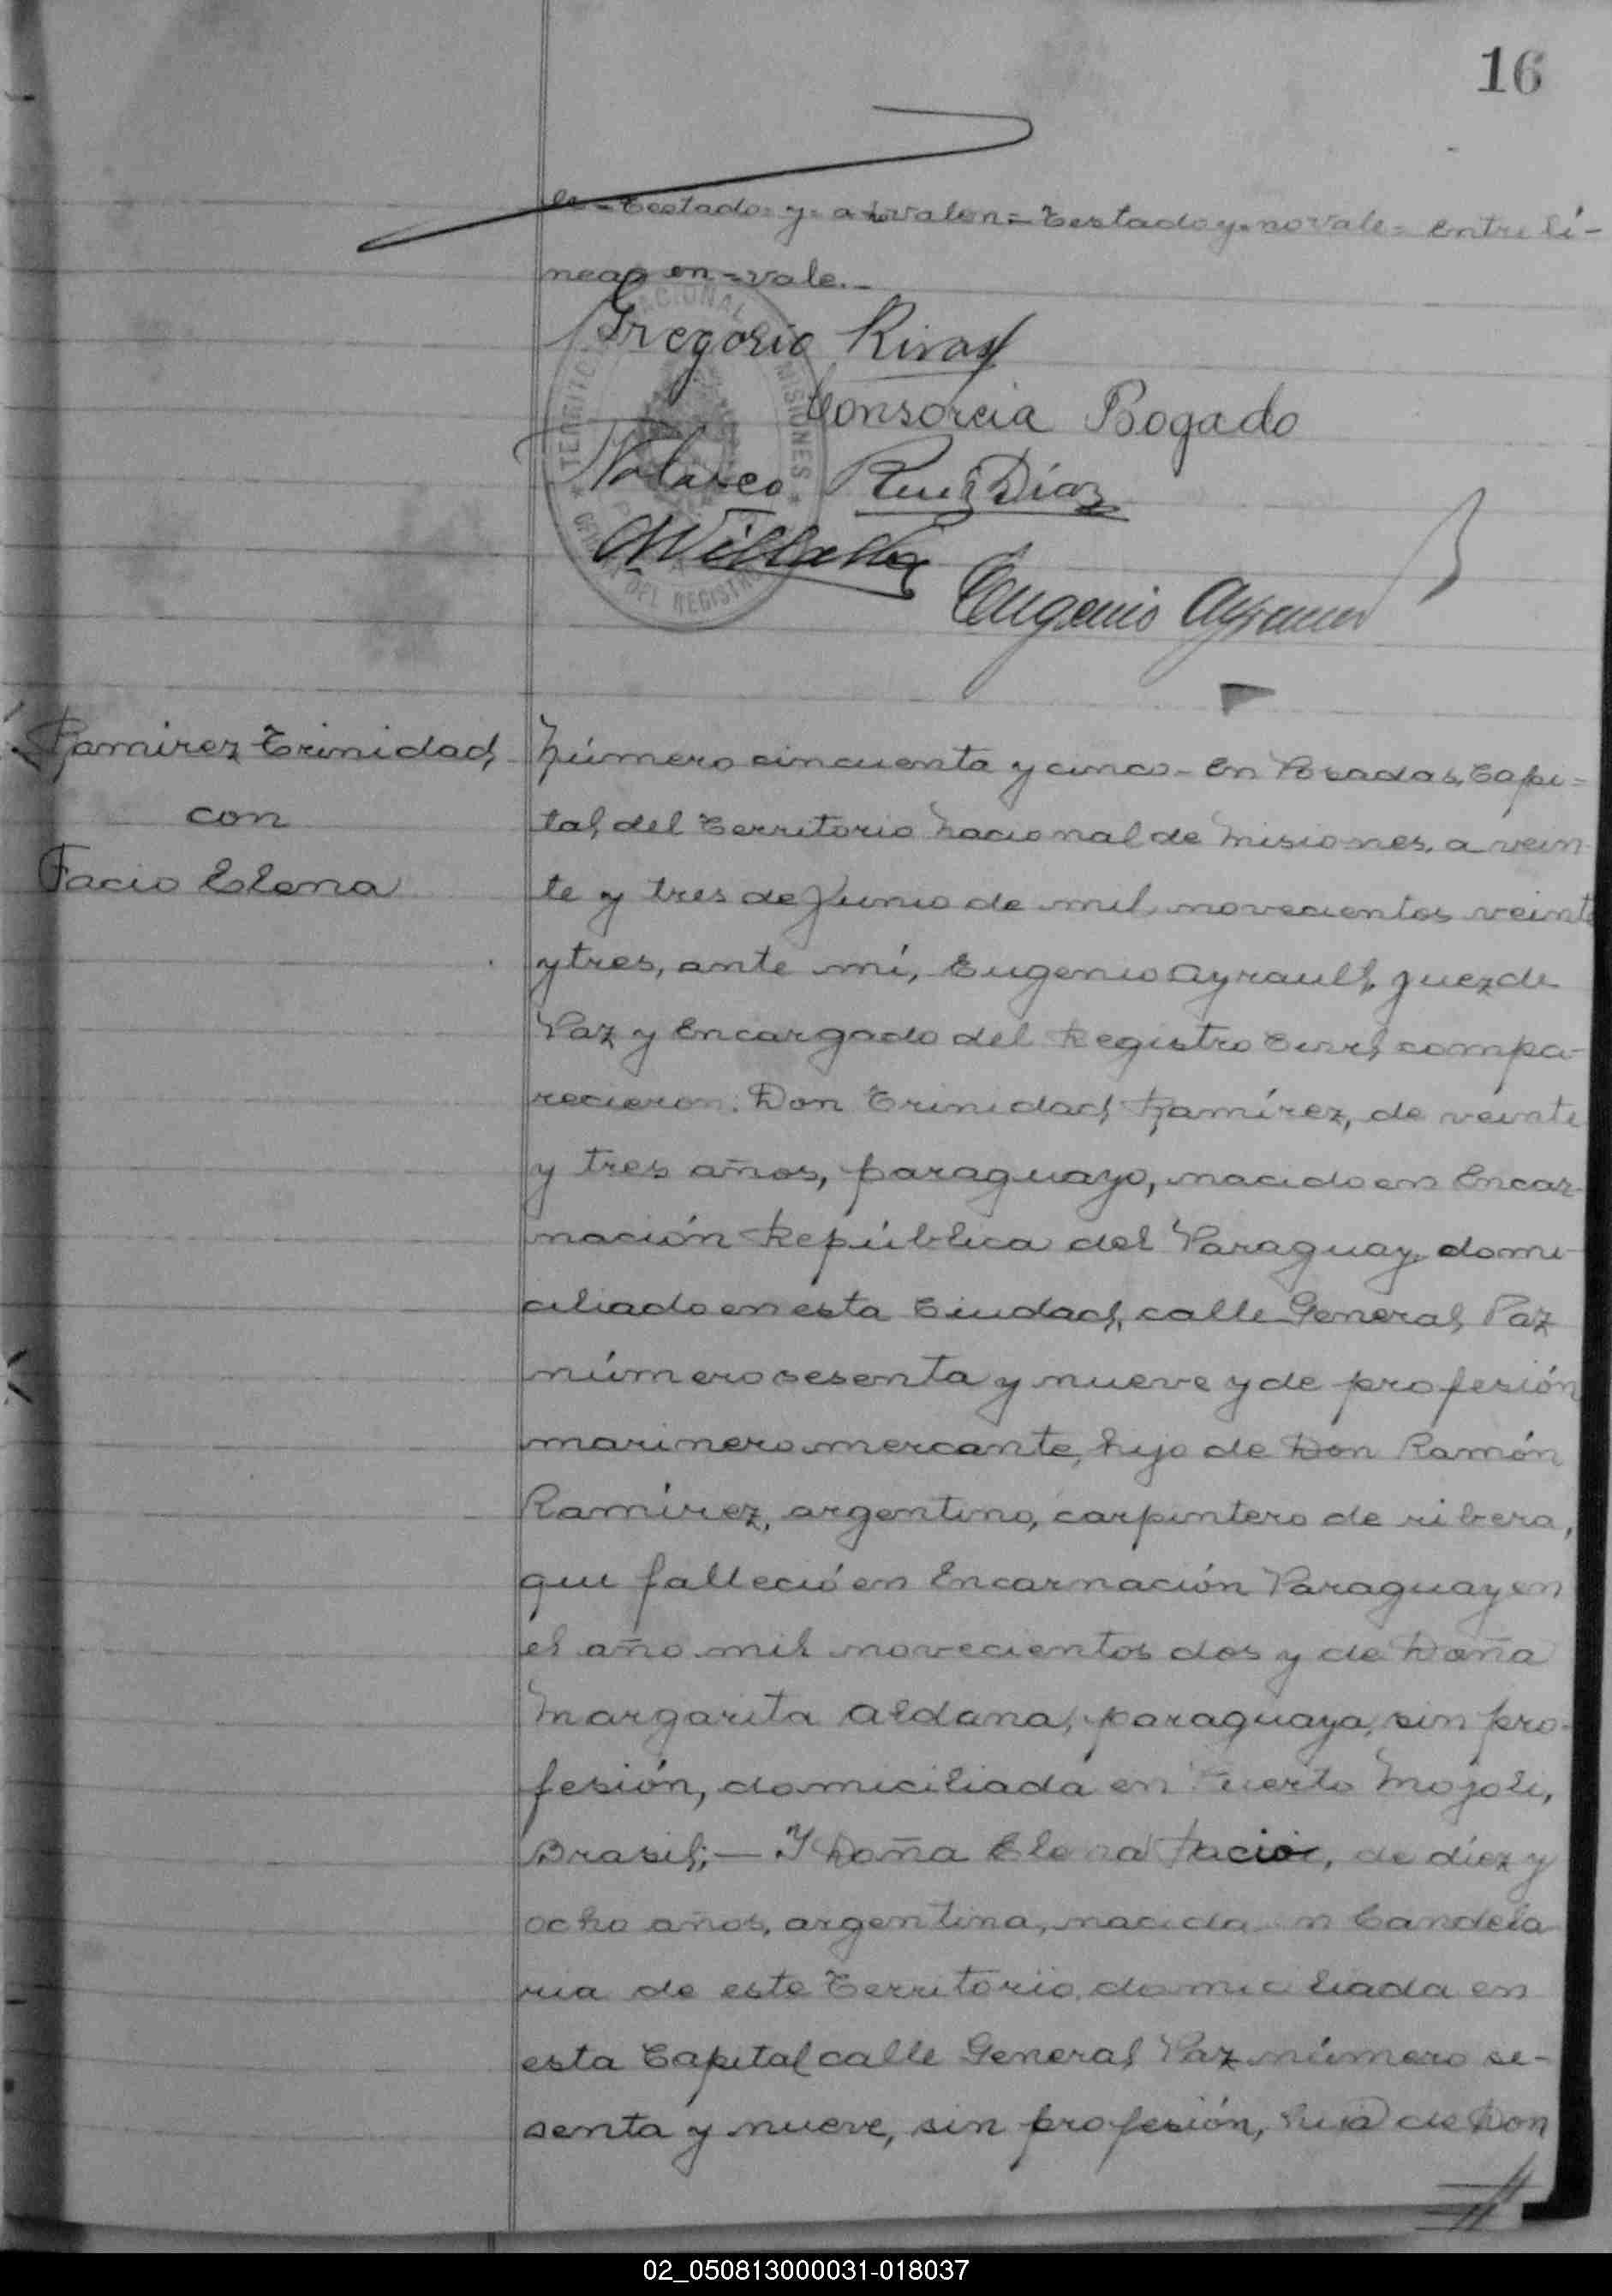 16
le=Testado=y=a=valen=Testado y=no vale=Entre lí-
neas en=vale.-
Gregorio Rivas
Consorcia Bogado
Nolasco Ruiz Díaz
Eugenio Ayrault
TERRITORIO NACIONAL MISIONES
OFICINA DEL REGISTRO
Ramirez Trinidad
con
Facio Elena
Número cincuenta y cinco- En Posadas, Capi=
tal, del Territorio Nacional de Misiones, a vein
te y tres de Junio de mil novecientos veinte
y tres, ante mí, Eugenio Ayrault, Juez de
Paz y Encargado del Registro Civil, compa-
recieron: Don Trinidad Ramírez, de veinte
y tres años, paraguayo, nacido en Encar-
nación República del Paraguay, domi-
ciliado en esta Ciudad, calle General Paz
número sesenta y nueve y de profesión
marinero mercante, hijo de Don Ramón
Ramírez, argentino, carpintero de ribera,
que falleció en Encarnación Paraguay en
el año mil novecientos dos y de Doña
Margarita Aldana, paraguaya, sin pro-
fesión, domiciliada en Puerto Mojoli,
Brasil;- Y Doña Elena Facio, de diez y
ocho años, argentina, nacida en Candela
ria de este Territorio, domiciliada en
esta Capital calle General Paz número se-
senta y nueve, sin profesión, hija de Don
02_050813000031-018037